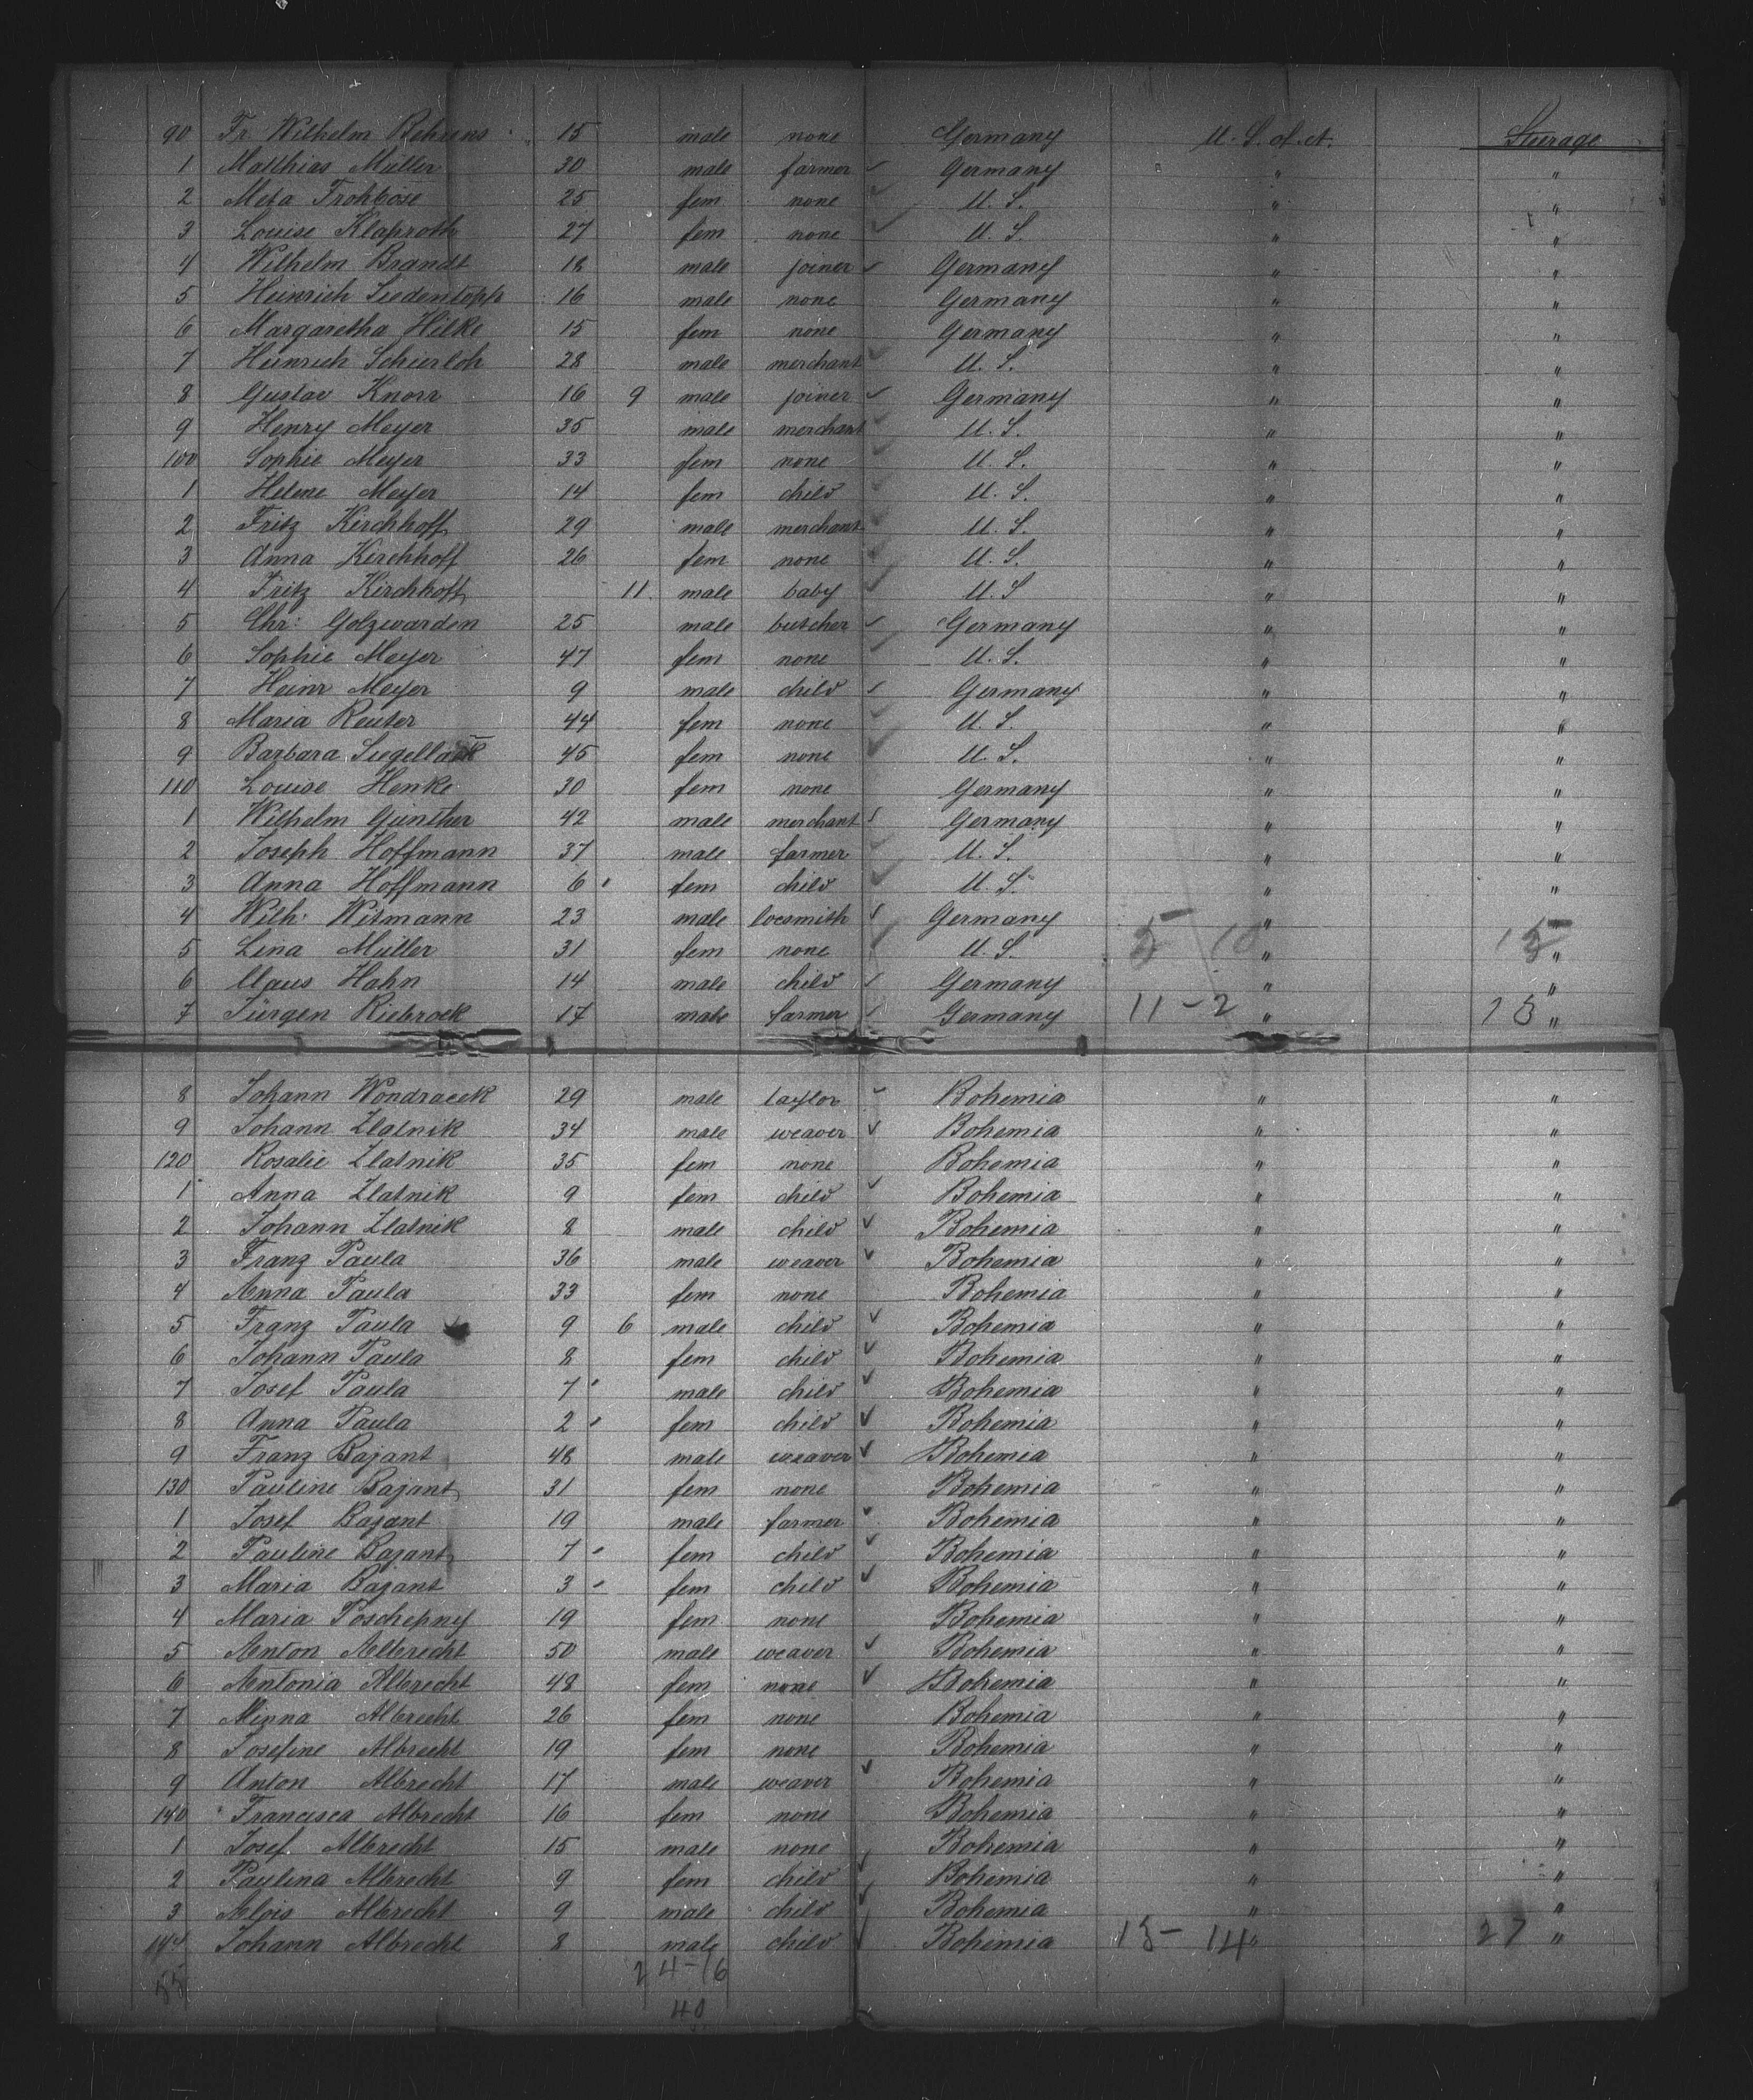 90 Fr. Wilhelm Behrens 15 male none Germany U. S. of A. Steerage
1 Matthias Müller 30 male farmer Germany " "
2 Meta Frohböse 25 fem none U. S. " "
3 Louise Klaproth 27 fem none U. S. " "
4 Wilhelm Brandt 18 male joiner Germany " "
5 Heinrich Siedentopf 16 male none Germany " "
6 Margaretha Hilke 15 fem none Germany " "
7 Heinrich Schierloh 28 male merchant U. S. " "
8 Gustav Knorr 16 9 male joiner Germany " "
9 Henry Meyer 35 male merchant U. S. " "
100 Sophie Meyer 33 fem none U. S. " "
1 Helene Meyer 14 fem child U. S. " "
2 Fritz Kirchhoff 29 male merchant U. S. " "
3 Anna Kirchhoff 26 fem none U. S. " "
4 Fritz Kirchhoff 11 male baby U. S " "
5 Chr: Golzwarden 25 male butcher Germany " "
6 Sophie Meyer 47 fem none U. S. " "
7 Heinr Meyer 9 male child Germany " "
8 Maria Reuter 44 fem none U. S. " "
9 Barbara Siegellack 45 fem none U. S. " "
110 Louise Henke 30 fem none Germany " "
1 Wilhelm Günther 42 male merchant Germany " "
2 Joseph Hoffmann 37 male farmer U. S. " "
3 Anna Hoffmann 6 fem child U. S. " "
4 Wilh: Witmann 23 male locsmith Germany " "
5 Lina Müller 31 fem none U. S. 5 10 " 15 "
6 Claus Hahn 14 male child Germany " "
7 Jürgen Riebrock 17 male farmer Germany 11 - 2 " 13 "
8 Johann Wondracek 29 male taylor Bohemia " "
9 Johann Zlatnik 34 male weaver Bohemia " "
120 Rosalie Zlatnik 35 fem none Bohemia " "
1 Anna Zlatnik 9 fem child Bohemia " "
2 Johann Zlatnik 8 male child Bohemia " "
3 Franz Paula 36 male weaver Bohemia " "
4 Anna Paula 33 fem none Bohemia " "
5 Franz Paula 9 6 male child Bohemia " "
6 Johann Paula 8 fem child Bohemia " "
7 Josef Paula 7 male child Bohemia " "
8 Anna Paula 2 fem child Bohemia " "
9 Franz Bajant 48 male weaver Bohemia " "
130 Pauline Bajant 31 fem none Bohemia " "
1 Josef Bajant 19 male farmer Bohemia " "
2 Pauline Bajant 7 fem child Bohemia " "
3 Maria Bajant 3 fem child Bohemia " "
4 Maria Poschepny 19 fem none Bohemia " "
5 Anton Albrecht 50 male weaver Bohemia " "
6 Antonia Albrecht 48 fem none Bohemia " "
7 Minna Albrecht 26 fem none Bohemia " "
8 Josefine Albrecht 19 fem none Bohemia " "
9 Anton Albrecht 17 male weaver Bohemia " "
140 Francisca Albrecht 16 fem none Bohemia " "
1 Josef Albrecht 15 male none Bohemia " "
2 Paulina Albrecht 9 fem child Bohemia " "
3 Alois Albrecht 9 male child Bohemia " "
144 Johann Albrecht 8 male child Bohemia 13 - 14 " 27 "
55 24-16
40